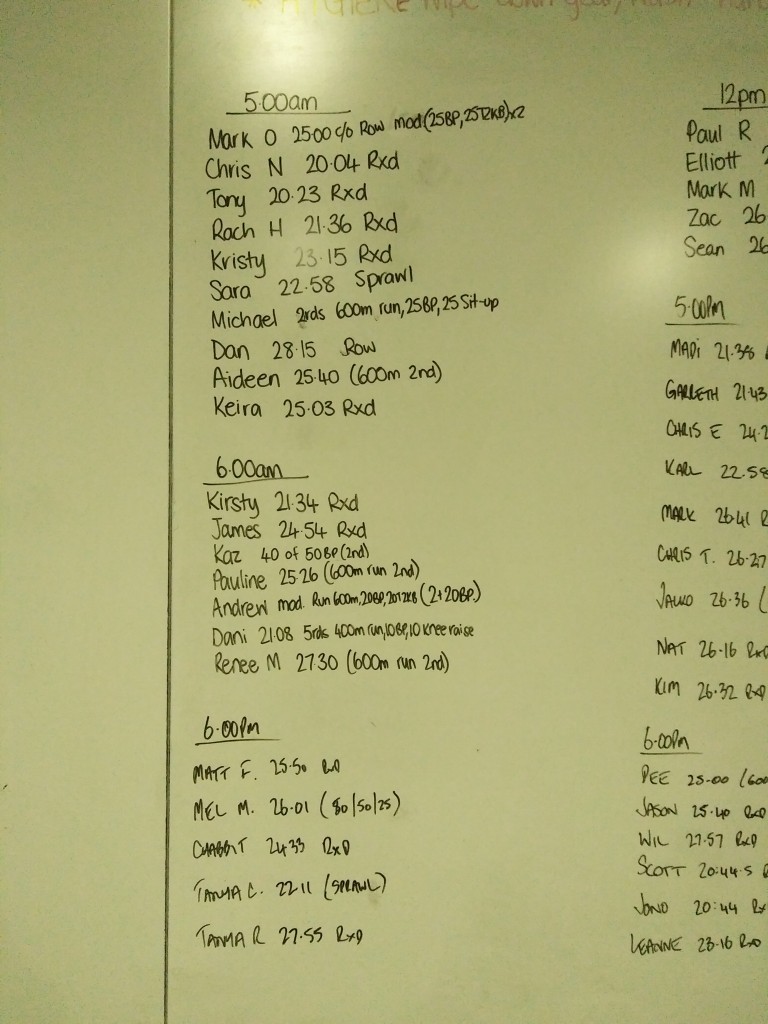 * HYGIENE wipe down gear, wash
5:00am
Mark O 25:00 c/o Row mod (25BP, 25 12KB)x2
Chris N 20.04 Rxd
Tony 20.23 Rxd
Rach H 21.36 Rxd
Kristy 23.15 Rxd
Sara 22.58 Sprawl
Michael 2rds 600m run, 25BP, 25 Sit-up
Dan 28.15 Row
Aideen 25.40 (600m 2nd)
Keira 25.03 Rxd
6:00am
Kirsty 21.34 Rxd
James 24.54 Rxd
Kaz 40 of 50BP (2nd)
Pauline 25.26 (600m run 2nd)
Andrew mod. Run 600m, 20BP, 20 12KB (2+20BP.)
Dani 21.08 5rds 400m run, 10BP, 10 Knee raise
Renee M 27.30 (600m run 2nd)
6.00Pm
MATT F. 25.50 RxD
MEL M. 26.01 (80/50/25)
24.33 RxD
TANYA C. 22.11 (SPRAWL)
TANYA R 27.55 RxD
12pm
Paul R
Elliott
Mark M
Zac 26
Sean 26
5:00Pm
MADi 21.38
GARRETH 21.43
CHRIS E 24.2
KARL 22.58
MARK 26.41
CHRIS T. 26.27
26.36 (
NAT 26.16 RxD
KIM 26.32 RxD
6:00Pm
PEE 25.00 (600
JASON 25.40 RxD
WIL 27.57 RxD
SCOTT 20:44.5
JONO 20:44 Rx
LEANNE 23.16 RxD